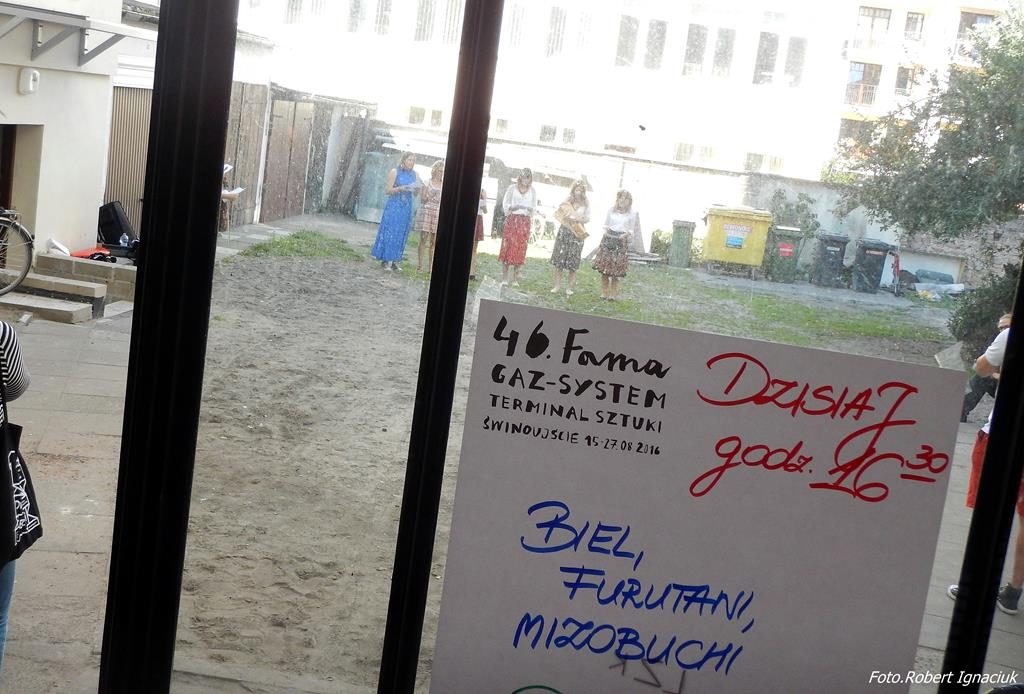 46. Fama
GAZ-SYSTEM
TERMINAL SZTUKI
ŚWINOUJŚCIE 15-27.08 2016
DZISIAJ
godz. 16 30
BIEL,
FURUTANI,
MIZOBUCHI
Foto.Robert Ignaciuk